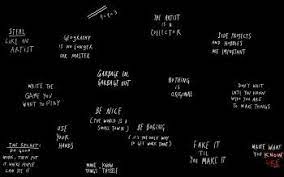 STEAL
LIKE AN
ARTIST
GEOGRAPHY
IS NO LONGER
OUR MASTER
THE ARTIST
IS A
COLLECTOR
SIDE PROJECTS
AND HOBBIES
ARE IMPORTANT
WRITE THE
GAME YOU
WANT TO PLAY
GARBAGE IN,
GARBAGE OUT
NOTHING
IS
ORIGINAL
DON'T WAIT
UNTIL YOU KNOW
WHO YOU ARE
TO MAKE THINGS
BE NICE
(THE WORLD IS A
SMALL TOWN)
USE
YOUR
HANDS
BE BORING
(IT'S THE ONLY WAY
TO GET WORK DONE)
FAKE IT
'TIL
YOU MAKE IT
WRITE WHAT
YOU KNOW
LIKE
THE SECRET:
DO GOOD
WORK, THEN PUT
IT WHERE PEOPLE
CAN SEE IT
MAKE
THINGS
KNOW
THYSELF